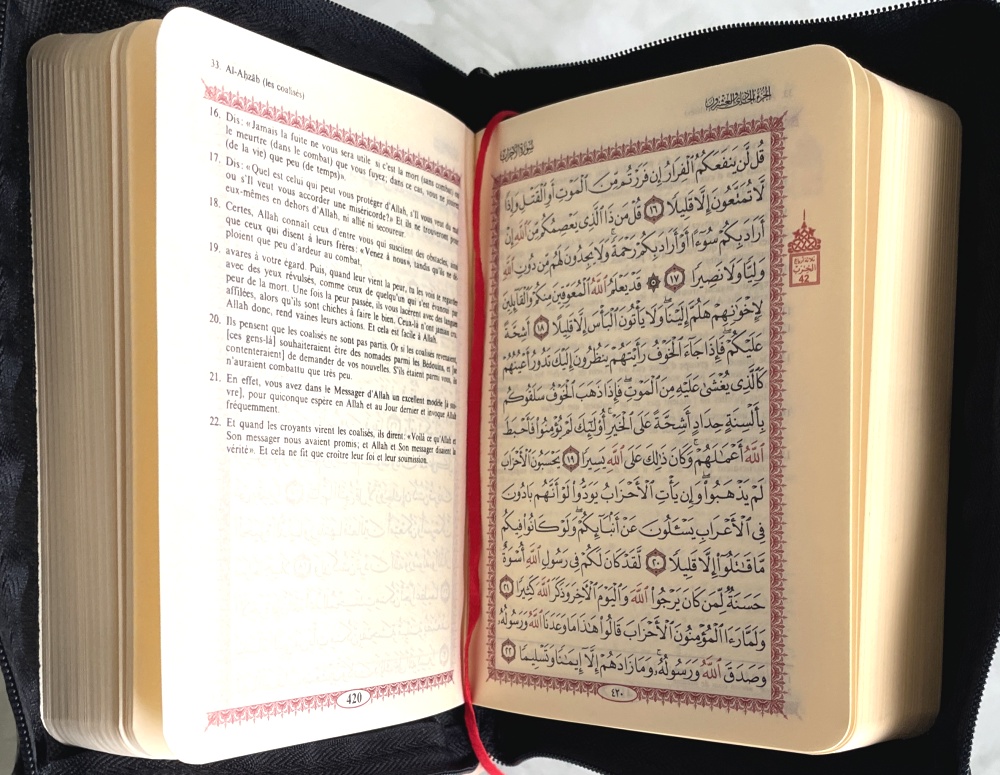 33. Al-Aḥzāb (les coalisés)
16. Dis: «Jamais la fuite ne vous sera utile si c'est la mort (sans combat) ou
le meurtre (dans le combat) que vous fuyez; dans ce cas, vous ne jouirez
(de la vie) que peu (de temps)».
17. Dis: «Quel est celui qui peut vous protéger d'Allah, s'Il vous veut du mal
ou s'Il veut vous accorder une miséricorde?» Et ils ne trouveront pour
eux-mêmes en dehors d'Allah, ni allié ni secoureur.
18. Certes, Allah connaît ceux d'entre vous qui suscitent des obstacles, ainsi
que ceux qui disent à leurs frères: «Venez à nous», tandis qu'ils ne dé-
ploient que peu d'ardeur au combat,
19. avares à votre égard. Puis, quand leur vient la peur, tu les vois te regarder
avec des yeux révulsés, comme ceux de quelqu'un qui s'est évanoui par
peur de la mort. Une fois la peur passée, ils vous lacèrent avec des langues
affilées, alors qu'ils sont chiches à faire le bien. Ceux-là n'ont jamais cru.
Allah donc, rend vaines leurs actions. Et cela est facile à Allah.
20. Ils pensent que les coalisés ne sont pas partis. Or si les coalisés revenaient,
[ces gens-là] souhaiteraient être des nomades parmi les Bédouins, et [se
contenteraient] de demander de vos nouvelles. S'ils étaient parmi vous, ils
n'auraient combattu que très peu.
21. En effet, vous avez dans le Messager d'Allah un excellent modèle [à sui-
vre], pour quiconque espère en Allah et au Jour dernier et invoque Allah
fréquemment.
22. Et quand les croyants virent les coalisés, ils dirent: «Voilà ce qu'Allah et
Son messager nous avaient promis; et Allah et Son messager disaient la
vérité». Et cela ne fit que croître leur foi et leur soumission.
420
الجزء الحادي والعشرون
سورة الأحزاب
قُل لَّن يَنفَعَكُمُ ٱلْفِرَارُ إِن فَرَرْتُم مِّنَ ٱلْمَوْتِ أَوِ ٱلْقَتْلِ وَإِذًا
لَّا تُمَتَّعُونَ إِلَّا قَلِيلًا ١٦ قُلْ مَن ذَا ٱلَّذِى يَعْصِمُكُم مِّنَ ٱللَّهِ إِنْ
أَرَادَ بِكُمْ سُوٓءًا أَوْ أَرَادَ بِكُمْ رَحْمَةً وَلَا يَجِدُونَ لَهُم مِّن دُونِ ٱللَّهِ
وَلِيًّا وَلَا نَصِيرًا ١٧ ۞ قَدْ يَعْلَمُ ٱللَّهُ ٱلْمُعَوِّقِينَ مِنكُمْ وَٱلْقَآئِلِينَ
لِإِخْوَٰنِهِمْ هَلُمَّ إِلَيْنَا وَلَا يَأْتُونَ ٱلْبَأْسَ إِلَّا قَلِيلًا ١٨ أَشِحَّةً
عَلَيْكُمْ فَإِذَا جَآءَ ٱلْخَوْفُ رَأَيْتَهُمْ يَنظُرُونَ إِلَيْكَ تَدُورُ أَعْيُنُهُمْ
كَٱلَّذِى يُغْشَىٰ عَلَيْهِ مِنَ ٱلْمَوْتِ فَإِذَا ذَهَبَ ٱلْخَوْفُ سَلَقُوكُم
بِأَلْسِنَةٍ حِدَادٍ أَشِحَّةً عَلَى ٱلْخَيْرِ أُو۟لَٰٓئِكَ لَمْ يُؤْمِنُوا۟ فَأَحْبَطَ
ٱللَّهُ أَعْمَٰلَهُمْ وَكَانَ ذَٰلِكَ عَلَى ٱللَّهِ يَسِيرًا ١٩ يَحْسَبُونَ ٱلْأَحْزَابَ
لَمْ يَذْهَبُوا۟ وَإِن يَأْتِ ٱلْأَحْزَابُ يَوَدُّوا۟ لَوْ أَنَّهُم بَادُونَ
فِى ٱلْأَعْرَابِ يَسْـَٔلُونَ عَنْ أَنۢبَآئِكُمْ وَلَوْ كَانُوا۟ فِيكُم
مَّا قَٰتَلُوٓا۟ إِلَّا قَلِيلًا ٢٠ لَّقَدْ كَانَ لَكُمْ فِى رَسُولِ ٱللَّهِ أُسْوَةٌ
حَسَنَةٌ لِّمَن كَانَ يَرْجُوا۟ ٱللَّهَ وَٱلْيَوْمَ ٱلْءَاخِرَ وَذَكَرَ ٱللَّهَ كَثِيرًا ٢١
وَلَمَّا رَءَا ٱلْمُؤْمِنُونَ ٱلْأَحْزَابَ قَالُوا۟ هَٰذَا مَا وَعَدَنَا ٱللَّهُ وَرَسُولُهُۥ
وَصَدَقَ ٱللَّهُ وَرَسُولُهُۥ وَمَا زَادَهُمْ إِلَّآ إِيمَٰنًا وَتَسْلِيمًا ٢٢
ثلاثة أرباع
الحزب
42
٤٢٠